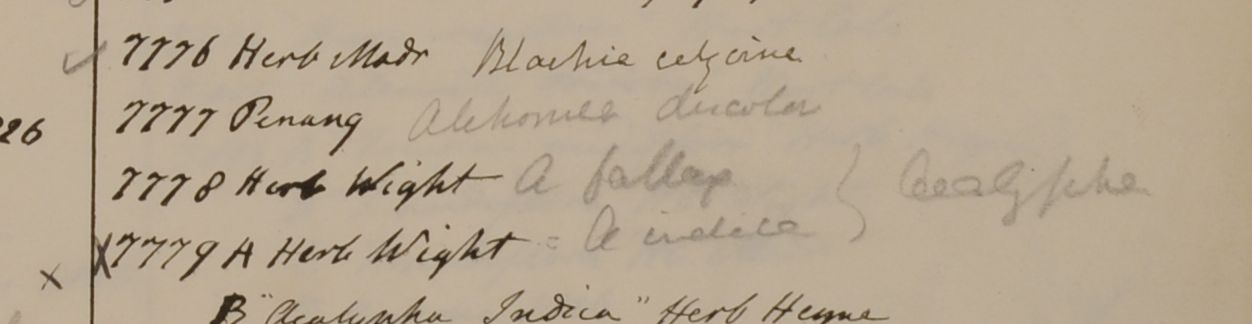 7776 Herb Madr Blachia calycina
26 7777 Penang Alchornea discolor
7778 Herb Wight A fallax } Acalypha
X X 7779 A Herb Wight = A indica
B "Acalypha Indica" Herb Heyne